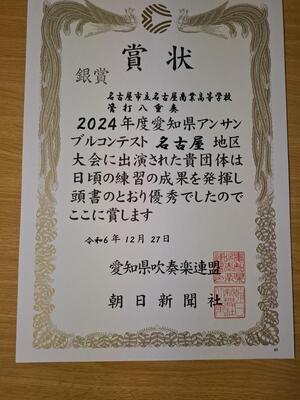 賞状
銀賞
名古屋市立名古屋商業高等学校
管打八重奏
2024年度愛知県アンサン
ブルコンテスト 名古屋 地区
大会に出演された貴団体は
日頃の練習の成果を発揮し
頭書のとおり優秀でしたので
ここに賞します
令和6年 12月 27日
愛知県吹奏楽連盟
朝日新聞社